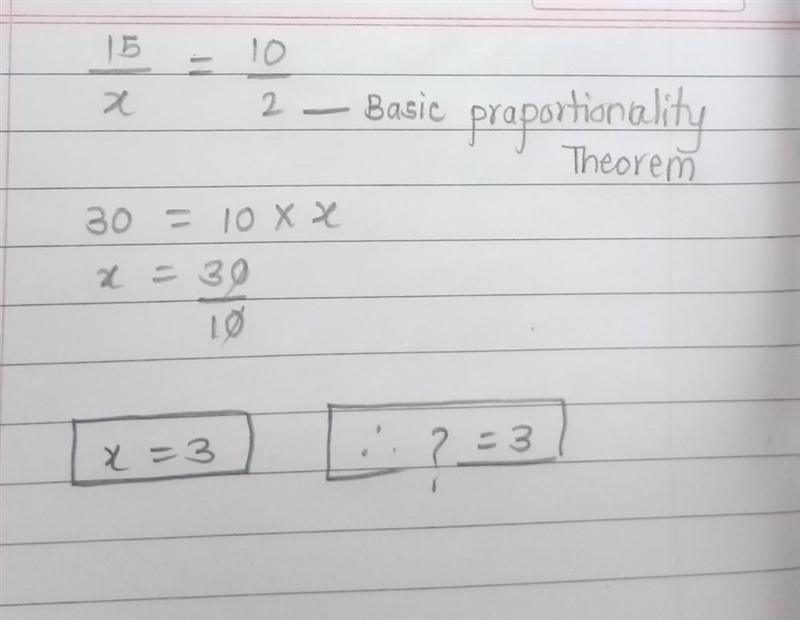 15/x = 10/2 — Basic praportionality
Theorem
30 = 10 × x
x = 30/10
x = 3 ∴ ? = 3